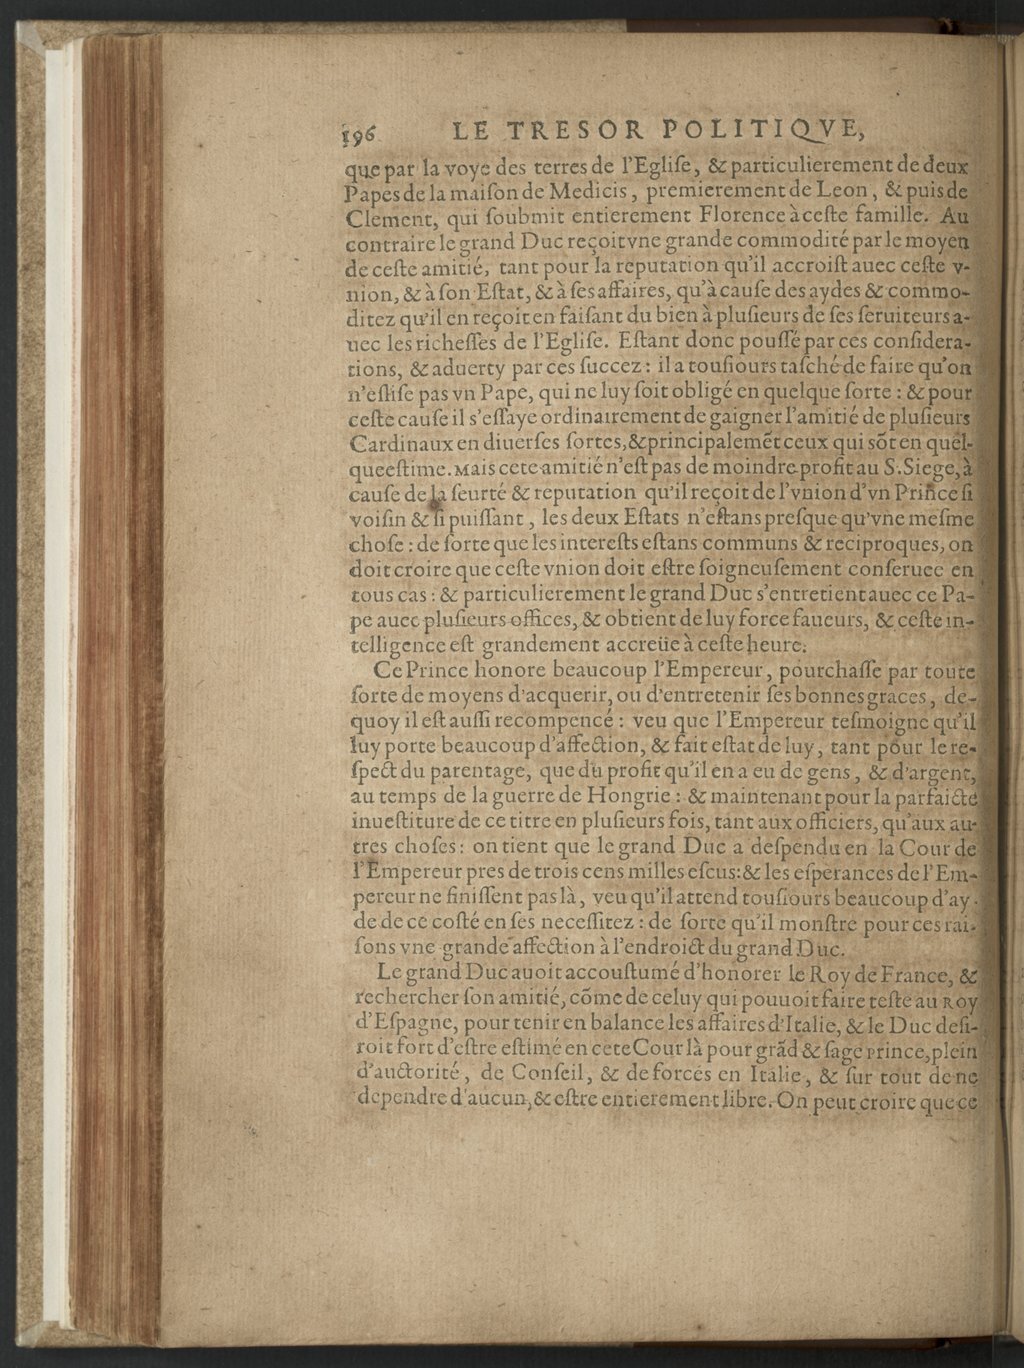 196 LE TRESOR POLITIQVE,
que par la voye des terres de l'Egliſe, & particulierement de deux
Papes de la maiſon de Medicis, premierement de Leon, & puis de
Clement, qui ſoubmit entierement Florence à ceſte famille. Au
contraire le grand Duc reçoit vne grande commodité par le moyen
de ceſte amitié, tant pour la reputation qu'il accroiſt auec ceſte v-
nion, & à ſon Eſtat, & à ſes affaires, qu'à cauſe des aydes & commo-
ditez qu'il en reçoit en faiſant du bien à pluſieurs de ſes ſeruiteurs a-
uec les richeſſes de l'Egliſe. Eſtant donc pouſſé par ces conſidera-
tions, & aduerty par ces ſuccez: il a touſiours taſché de faire qu'on
n'eſliſe pas vn Pape, qui ne luy ſoit obligé en quelque ſorte: & pour
ceſte cauſe il s'eſſaye ordinairement de gaigner l'amitié de pluſieurs
Cardinaux en diuerſes ſortes, & principalemẽt ceux qui sõt en quel-
que eſtime. Mais cete amitié n'eſt pas de moindre profit au S. Siege, à
cauſe de la ſeurté & reputation qu'il reçoit de l'vnion d'vn Prince ſi
voiſin & ſi puiſſant, les deux Eſtats n'eſtans preſque qu'vne meſme
choſe: de ſorte que les intereſts eſtans communs & reciproques, on
doit croire que ceſte vnion doit eſtre ſoigneuſement conſeruee en
tous cas: & particulierement le grand Duc s'entretient auec ce Pa-
pe auec pluſieurs offices, & obtient de luy force faueurs, & ceſte in-
telligence eſt grandement accreüe à ceſte heure.
Ce Prince honore beaucoup l'Empereur, pourchaſſe par toute
ſorte de moyens d'acquerir, ou d'entretenir ſes bonnes graces, de-
quoy il eſt auſſi recompencé: veu que l'Empereur teſmoigne qu'il
luy porte beaucoup d'affection, & fait eſtat de luy, tant pour le re-
ſpect du parentage, que du profit qu'il en a eu de gens, & d'argent,
au temps de la guerre de Hongrie: & maintenant pour la parfaicte
inueſtiture de ce titre en pluſieurs fois, tant aux officiers, qu'aux au-
tres choſes: on tient que le grand Duc a deſpendu en la Cour de
l'Empereur pres de trois cens milles eſcus: & les eſperances de l'Em-
pereur ne finiſſent pas là, veu qu'il attend touſiours beaucoup d'ay-
de de ce coſté en ſes neceſſitez: de ſorte qu'il monſtre pour ces rai-
ſons vne grande affection à l'endroict du grand Duc.
Le grand Duc auoit accouſtumé d'honorer le Roy de France, &
rechercher ſon amitié, cõme de celuy qui pouuoit faire teſte au Roy
d'Eſpagne, pour tenir en balance les affaires d'Italie, & le Duc deſi-
roit fort d'eſtre eſtimé en cete Cour là pour grãd & ſage Prince, plein
d'auctorité, de Conſeil, & de forces en Italie, & ſur tout de ne
dependre d'aucun, & eſtre entierement libre. On peut croire que ce